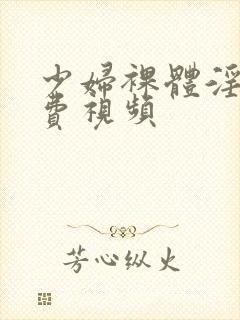 少婦裸體淫
費視頻
芳心纵火